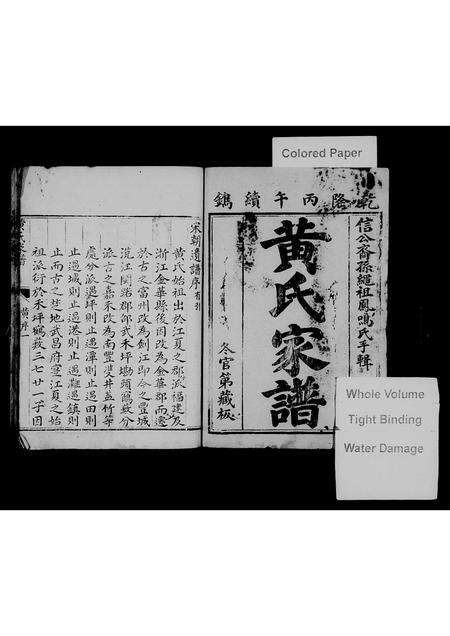 Colored Paper
乾隆丙午續鐫
信公裔孫繩祖鳳鳴氏手輯
黃氏家譜
冬官第藏板
Whole Volume
Tight Binding
Water Damage
宋朝遺譜序
黃氏始祖出於江夏之郡派福建及
浙江金華縣後因改為金華郡而遷
於古之富州改為劍江即今之豐城
派古之嘉禾改為南豐雙井盖竹等
處分派遇坪則止遇潭則止遇田則
止遇城則止遇港則止遇灘遇鎮則
止而古之楚地武昌府寔江夏之始
祖派行於禾坪鶴敖三七廿一子因